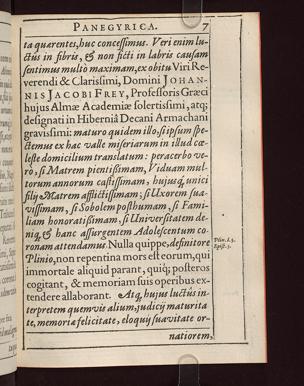 PANEGYRICA. 7
ta quærentes, huc concessimus. Veri enim lu-
ctûs in fibris, & non ficti in labris causam
sentimus multò maximam, ex obitu Viri Re-
verendi & Clarissimi, Domini JOHAN-
NIS JACOBI FREY, Professoris Græci
hujus Almæ Academiæ solertissimi, atq;
designati in Hiberniâ Decani Armachani
gravissimi: maturo quidem illo, si ipsum spe-
ctemus ex hac valle miseriarum in illud cæ-
leste domicilium translatum: peracerbo ve-
rò, si Matrem pientissimam, Viduam mul-
torum annorum castissimam, hujusq; unici
filij Matrem afflictissimam; si Uxorem sua-
vissimam, si Sobolem posthumam, si Fami-
liam honoratissimam, si Universitatem de-
niq; & hanc assurgentem Adolescentum co-
ronam attendamus. Nulla quippe, definitore
Plinio, non repentina mors est eorum, qui
immortale aliquid parant, quiq; posteros
cogitant, & memoriam suis operibus ex-
tendere allaborant. Atq; hujus luctûs in-
terpretem quemvis alium, judicij maturita-
te, memoriæ felicitate, eloquij suavitate or-
natiorem,
Plin. l. 5.
Epist. 5.